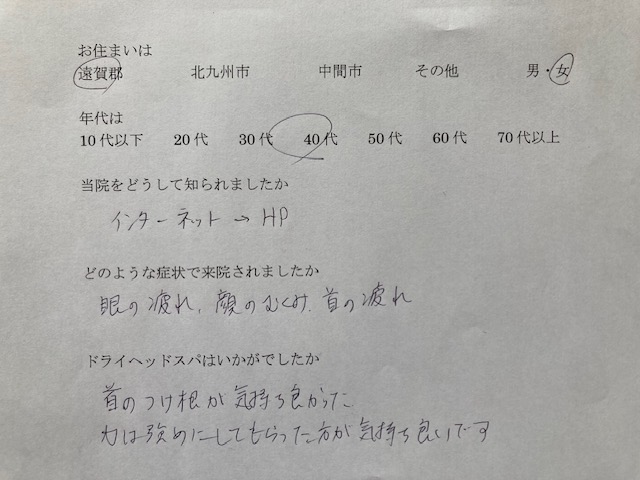 お住まいは
遠賀郡 北九州市 中間市 その他 男・女
年代は
10代以下 20代 30代 40代 50代 60代 70代以上
当院をどうして知られましたか
インターネット→HP
どのような症状で来院されましたか
眼の疲れ、顔のむくみ、首の疲れ
ドライヘッドスパはいかがでしたか
首のつけ根が気持ち良かった
力は強めにしてもらった方が気持ち良いです